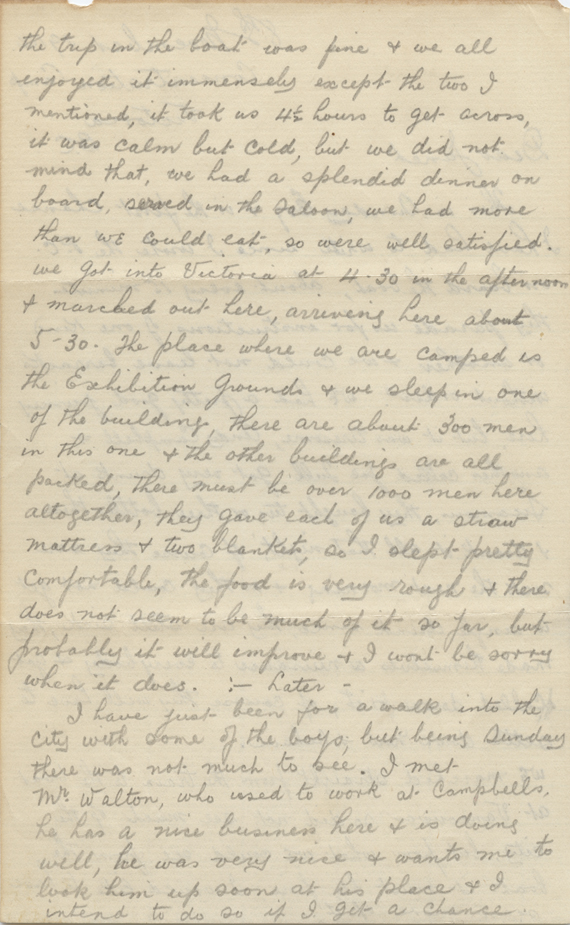 the trip in the boat was fine & we all
enjoyed it immensely except the two I
mentioned, it took us 4½ hours to get across,
it was calm but cold, but we did not
mind that, we had a splendid dinner on
board, served in the saloon, we had more
than we could eat, so were well satisfied.
we got into Victoria at 4-30 in the afternoon
& marched out here, arriving here about
5-30. The place where we are camped is
the Exhibition Grounds & we sleep in one
of the building, there are about 300 men
in this one & the other buildings are all
packed, there must be over 1000 men here
altogether, they gave each of us a straw
mattress & two blankets, so I slept pretty
comfortable, the food is very rough & there
does not seem to be much of it so far, but
probably it will improve & I wont be sorry
when it does. :- Later -
I have just been for a walk into the
city with some of the boys, but being Sunday
there was not much to see. I met
Mr. Walton, who used to work at Campbells,
he has a nice business here & is doing
well, he was very nice & wants me to
look him up soon at his place & I
intend to do so if I get a chance.